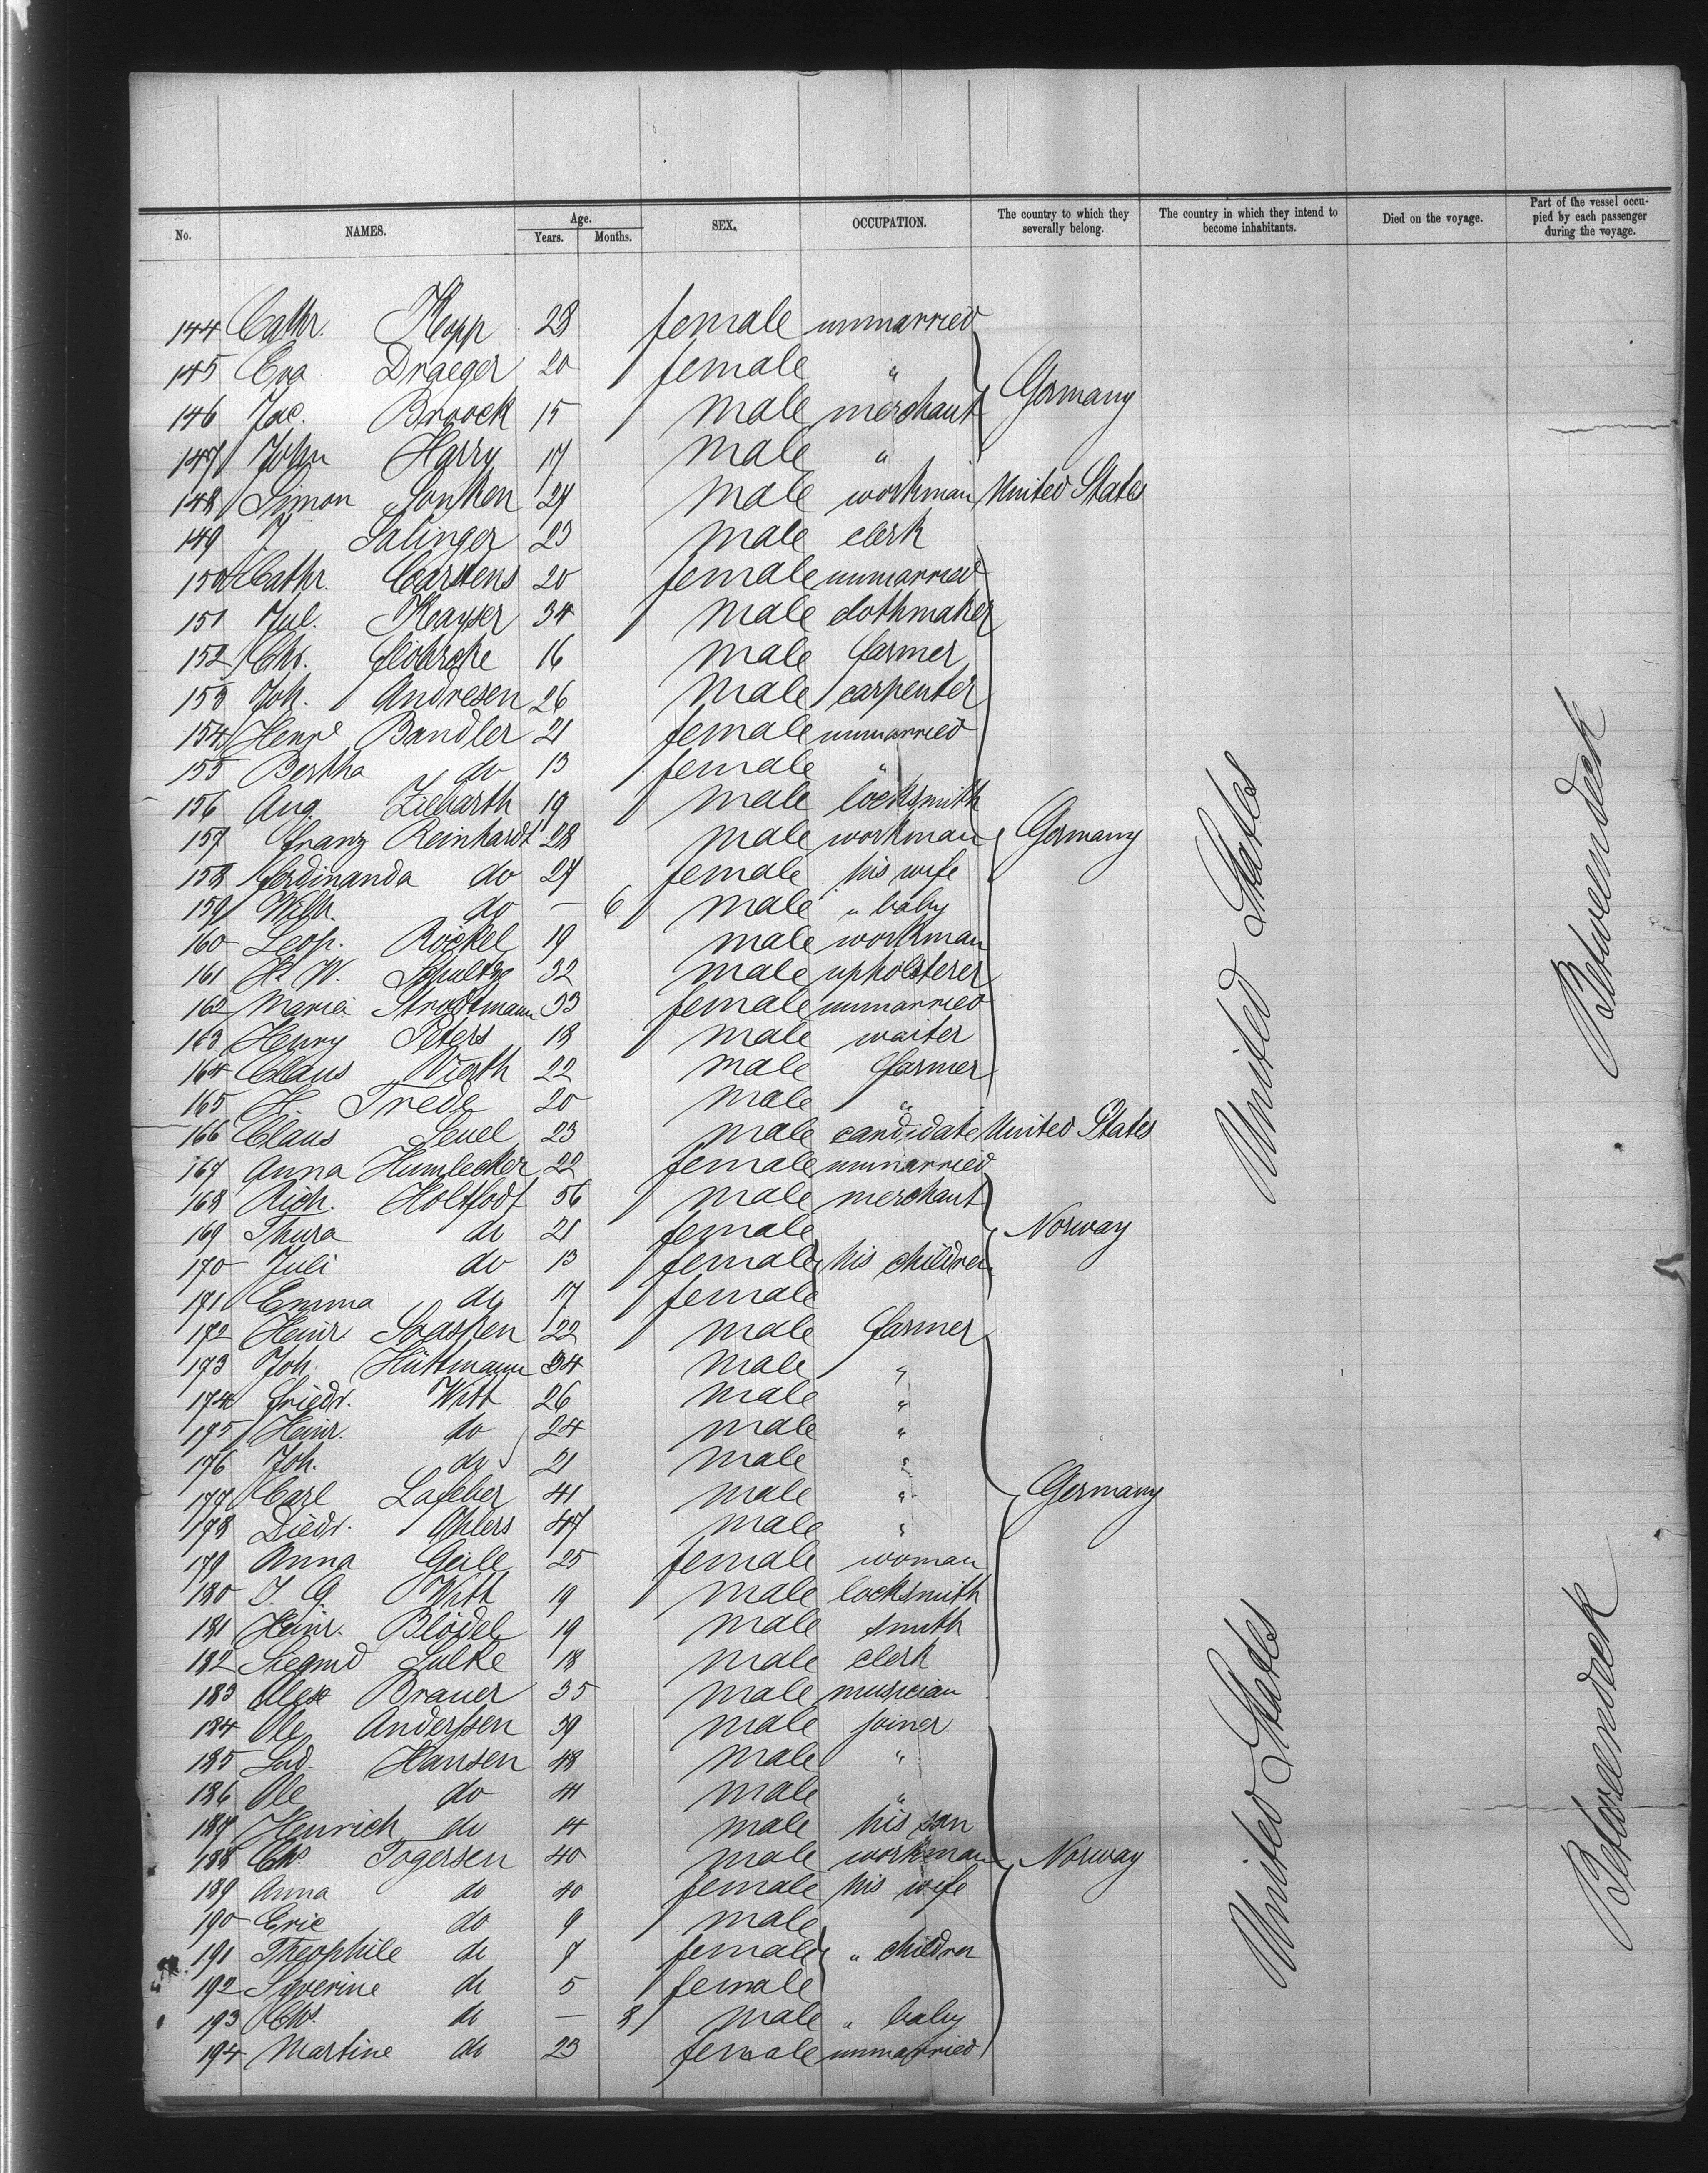 No. NAMES. Age. Years. Months. SEX. OCCUPATION. The country to which they severally belong. The country in which they intend to become inhabitants. Died on the voyage. Part of the vessel occupied by each passenger during the voyage.
144 Cathr. Kopp 28 female unmarried
145 Eva Draeger 20 female "
146 Jac. Broock 15 male merchant Germany
147 John Harry 17 male "
148 Simon Sonken 27 male workman United States
149 J Salinger 23 male clerk
150 Cathr. Carstens 20 female unmarried
151 Jul. Kayser 34 male clothmaker
152 Chr. 16 male farmer
153 Joh. Andresen 26 male carpenter
154 Henre Bandler 21 female unmarried
155 Bertha do 13 female "
156 Aug. Ziebarth 19 male locksmith
157 Franz Reinhardt 28 male workman Germany
158 Ferdinanda do 27 female his wife
159 Wilh. do — 6 male " baby
160 Leop. Röckel 19 male workman
161 H. W. Schultze 32 male upholsterer
162 Maria Strodtmann 33 female unmarried
163 Henry Peters 18 male waiter
164 Claus Vierth 22 male farmer
165 H Trede 20 male "
166 Claus Leuel 23 male candidate United States
167 Anna Humlecker 22 female unmarried
168 Rich. Holtfodt 56 male merchant
169 Thura do 21 female Norway
170 Juli do 13 female his children
171 Emma do 17 female
172 Heinr. Soasken 22 male farmer
173 Joh. Hüttmann 34 male "
174 Friedr. Witt 26 male "
175 Heinr. do 24 male "
176 Joh. do 21 male "
177 Carl Lafeber 41 male " Germany
178 Diedr. Ohlers 47 male "
179 Anna Geile 25 female woman
180 J. G. Witt 19 male locksmith
181 Heinr. Blödel 19 male smith
182 Siegmd Sulke 18 male clerk
183 Alex Brauer 35 male musician
184 Ole Anderssen 39 male joiner
185 Lud. Hansen 48 male "
186 Ole do 41 male "
187 Henrich do 14 male his son
188 Chr. Togersen 40 male workman Norway
189 Anna do 40 female his wife
190 Eric do 9 male
191 Theophile do 7 female " children
192 Syverine do 5 female
193 Chr. do — 8 male " baby
194 Martine do 23 female unmarried
United States
Betweendeck
United States
Betweendeck